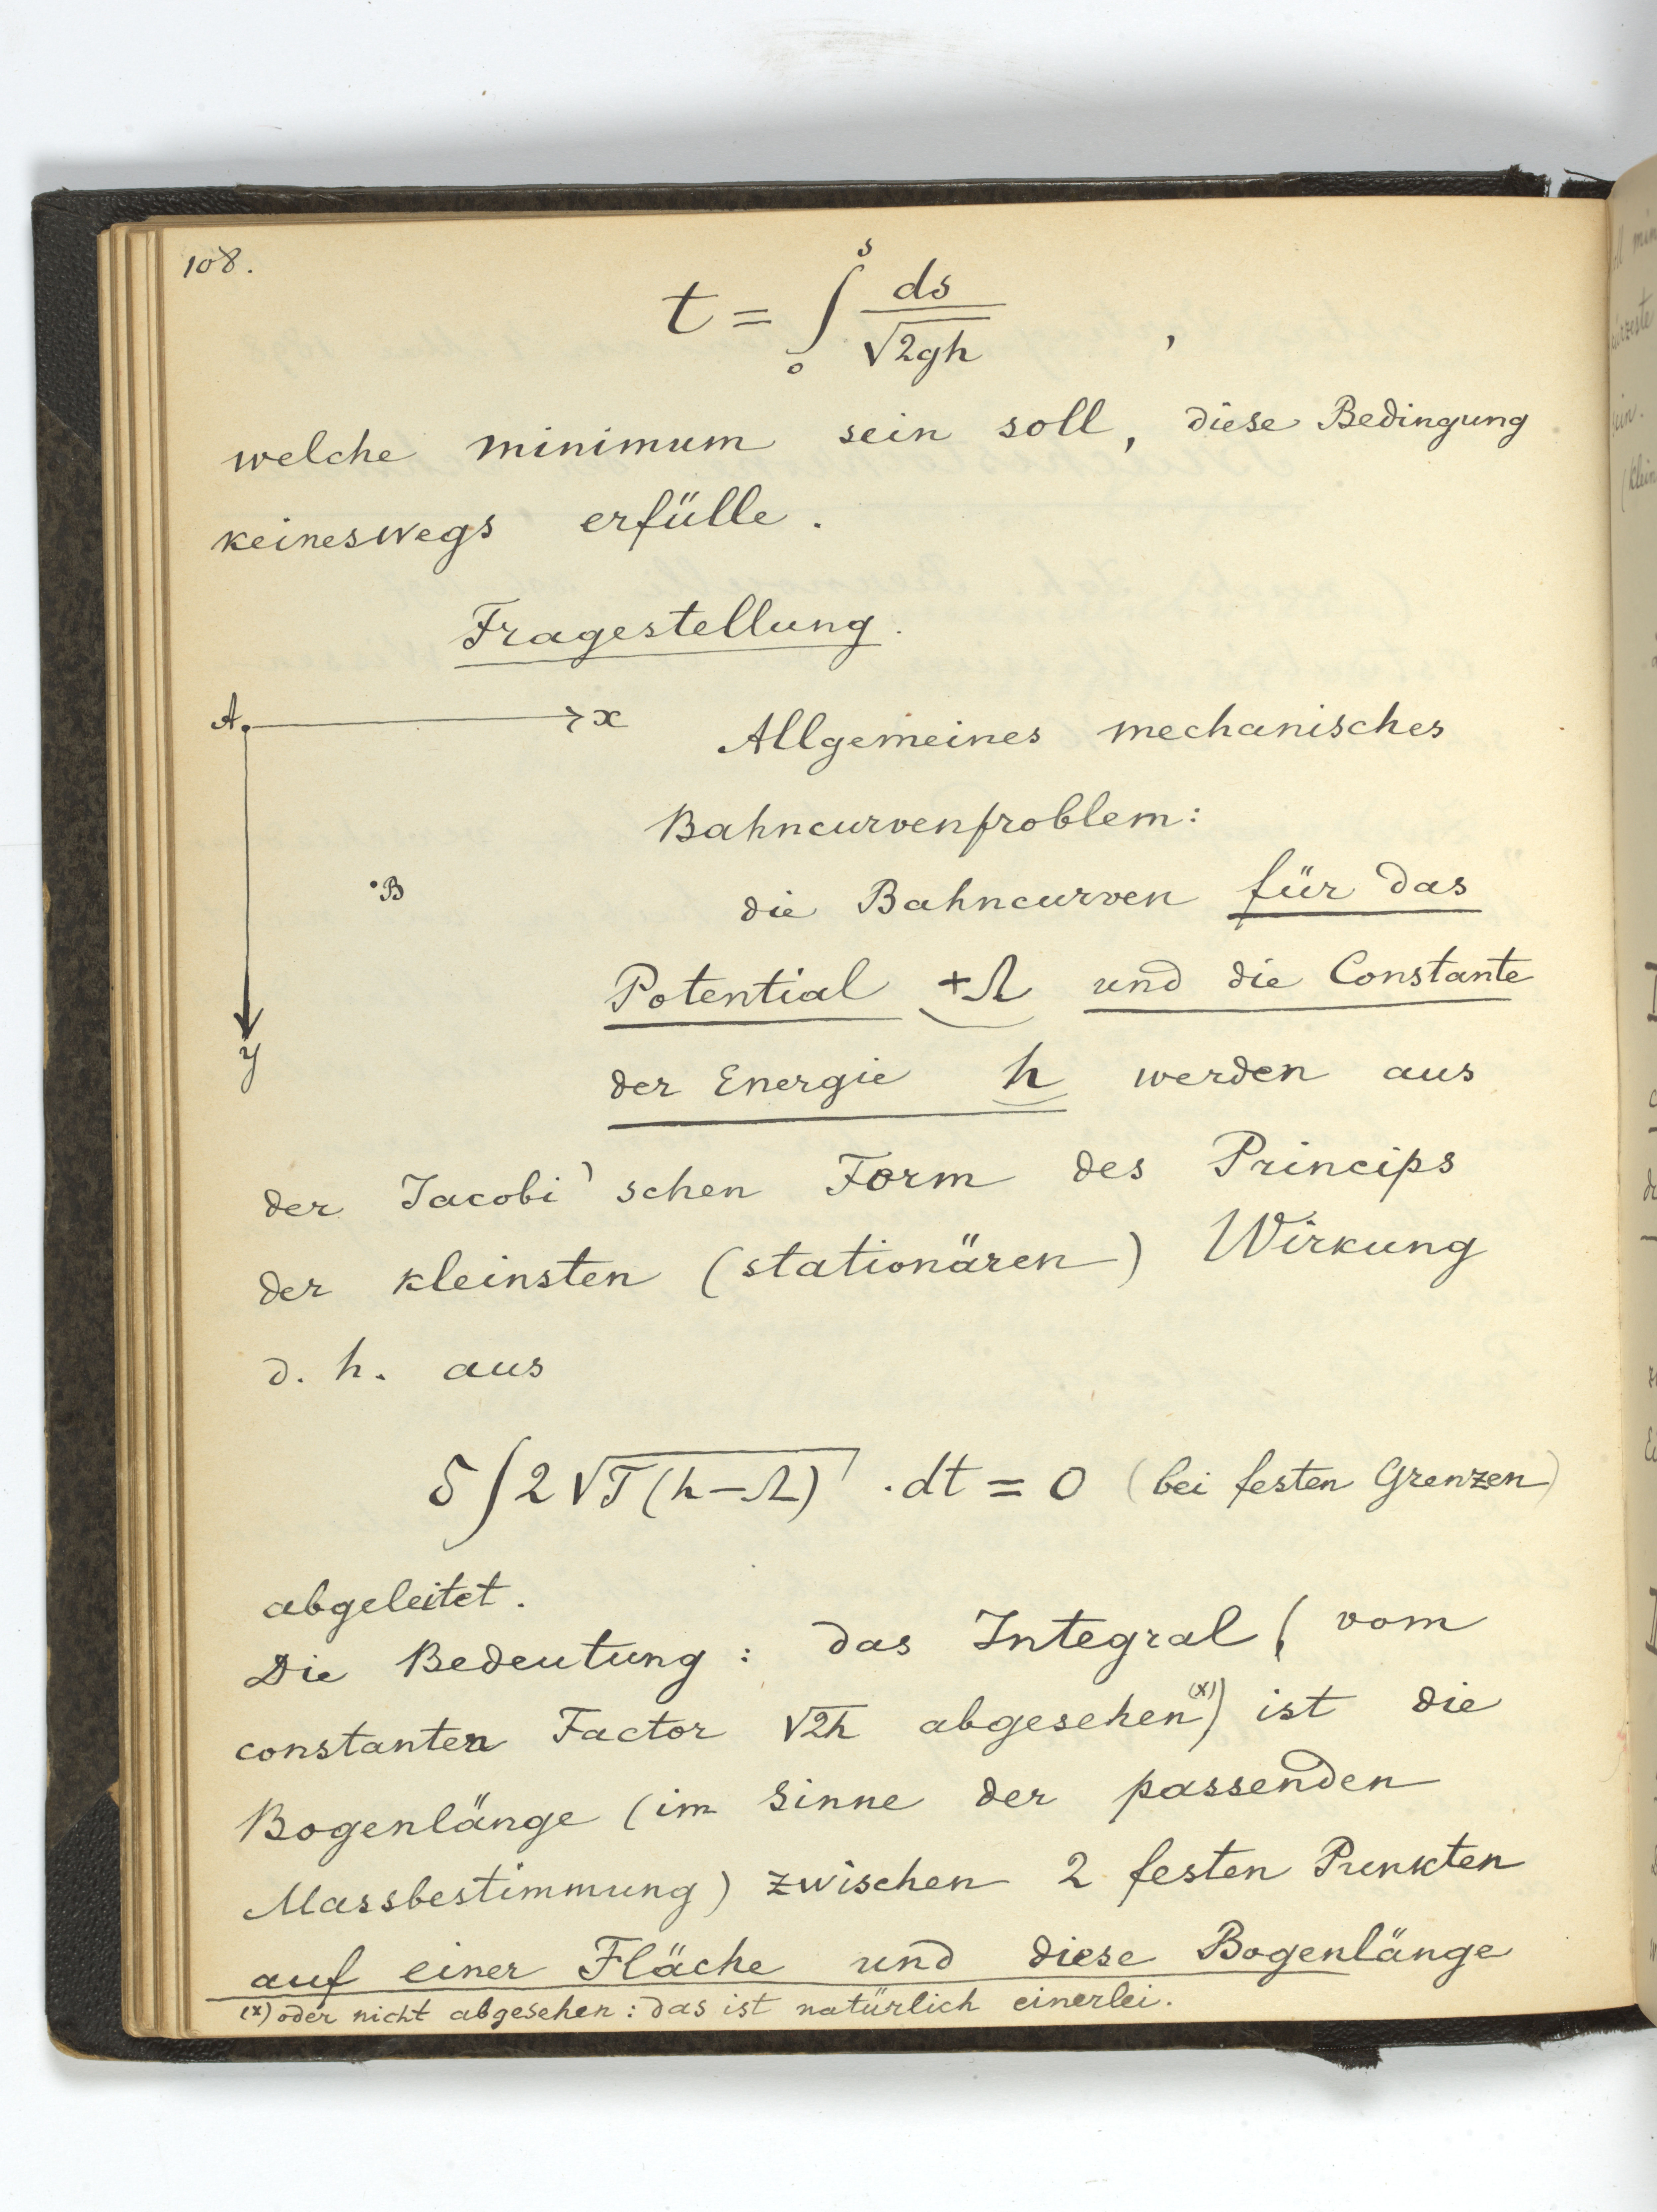 108.
t = ∫₀ˢ ds/√2gh ,
welche minimum sein soll, diese Bedingung
keineswegs erfülle.
Fragestellung.
A. x
B
y
Allgemeines mechanisches
Bahncurvenproblem:
die Bahncurven für das
Potential +Ω und die Constante
der Energie h werden aus
der Jacobi'schen Form des Princips
der kleinsten (stationären) Wirkung
d. h. aus
δ∫2√T(h-Ω) · dt = 0 (bei festen Grenzen)
abgeleitet.
Die Bedeutung: das Integral (vom
constanten Factor √2h abgesehen(x)) ist die
Bogenlänge (im Sinne der passenden
Massbestimmung) zwischen 2 festen Punkten
auf einer Fläche und diese Bogenlänge
(x) oder nicht abgesehen: das ist natürlich einerlei.